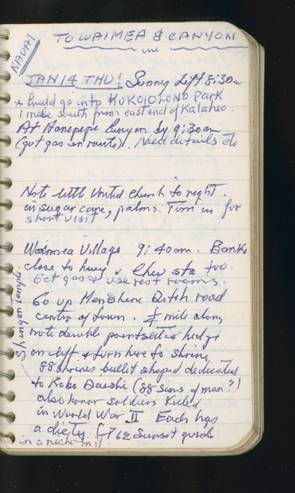 KAUAI
TO WAIMEA & CANYON
JAN 14 THU! Sunny Left 8:30a
* Could go into KUKOIOLONO Park
1 mile south from east end of Kalaheo.
At Hanapepe Canyon by 9:30am
(got gas en route). Need details
Note little United Church to right.
in sugar cane, palms. Turn in for
short visit
Waimea Village 9:40am. Banks
close to hiway. Chev sta too.
Get gas & use rest rooms.
Go up Menehune Ditch road
centre of town. mile along
note double poinsettia hedge
on cliff & turn here to shrine,
88 shrines bullet shaped dedicated
to Kobo Daishi (88 sins of man?)
also honor soldiers killed
in World War II Each has
a diety (7 62 Sunset guide
in a niche